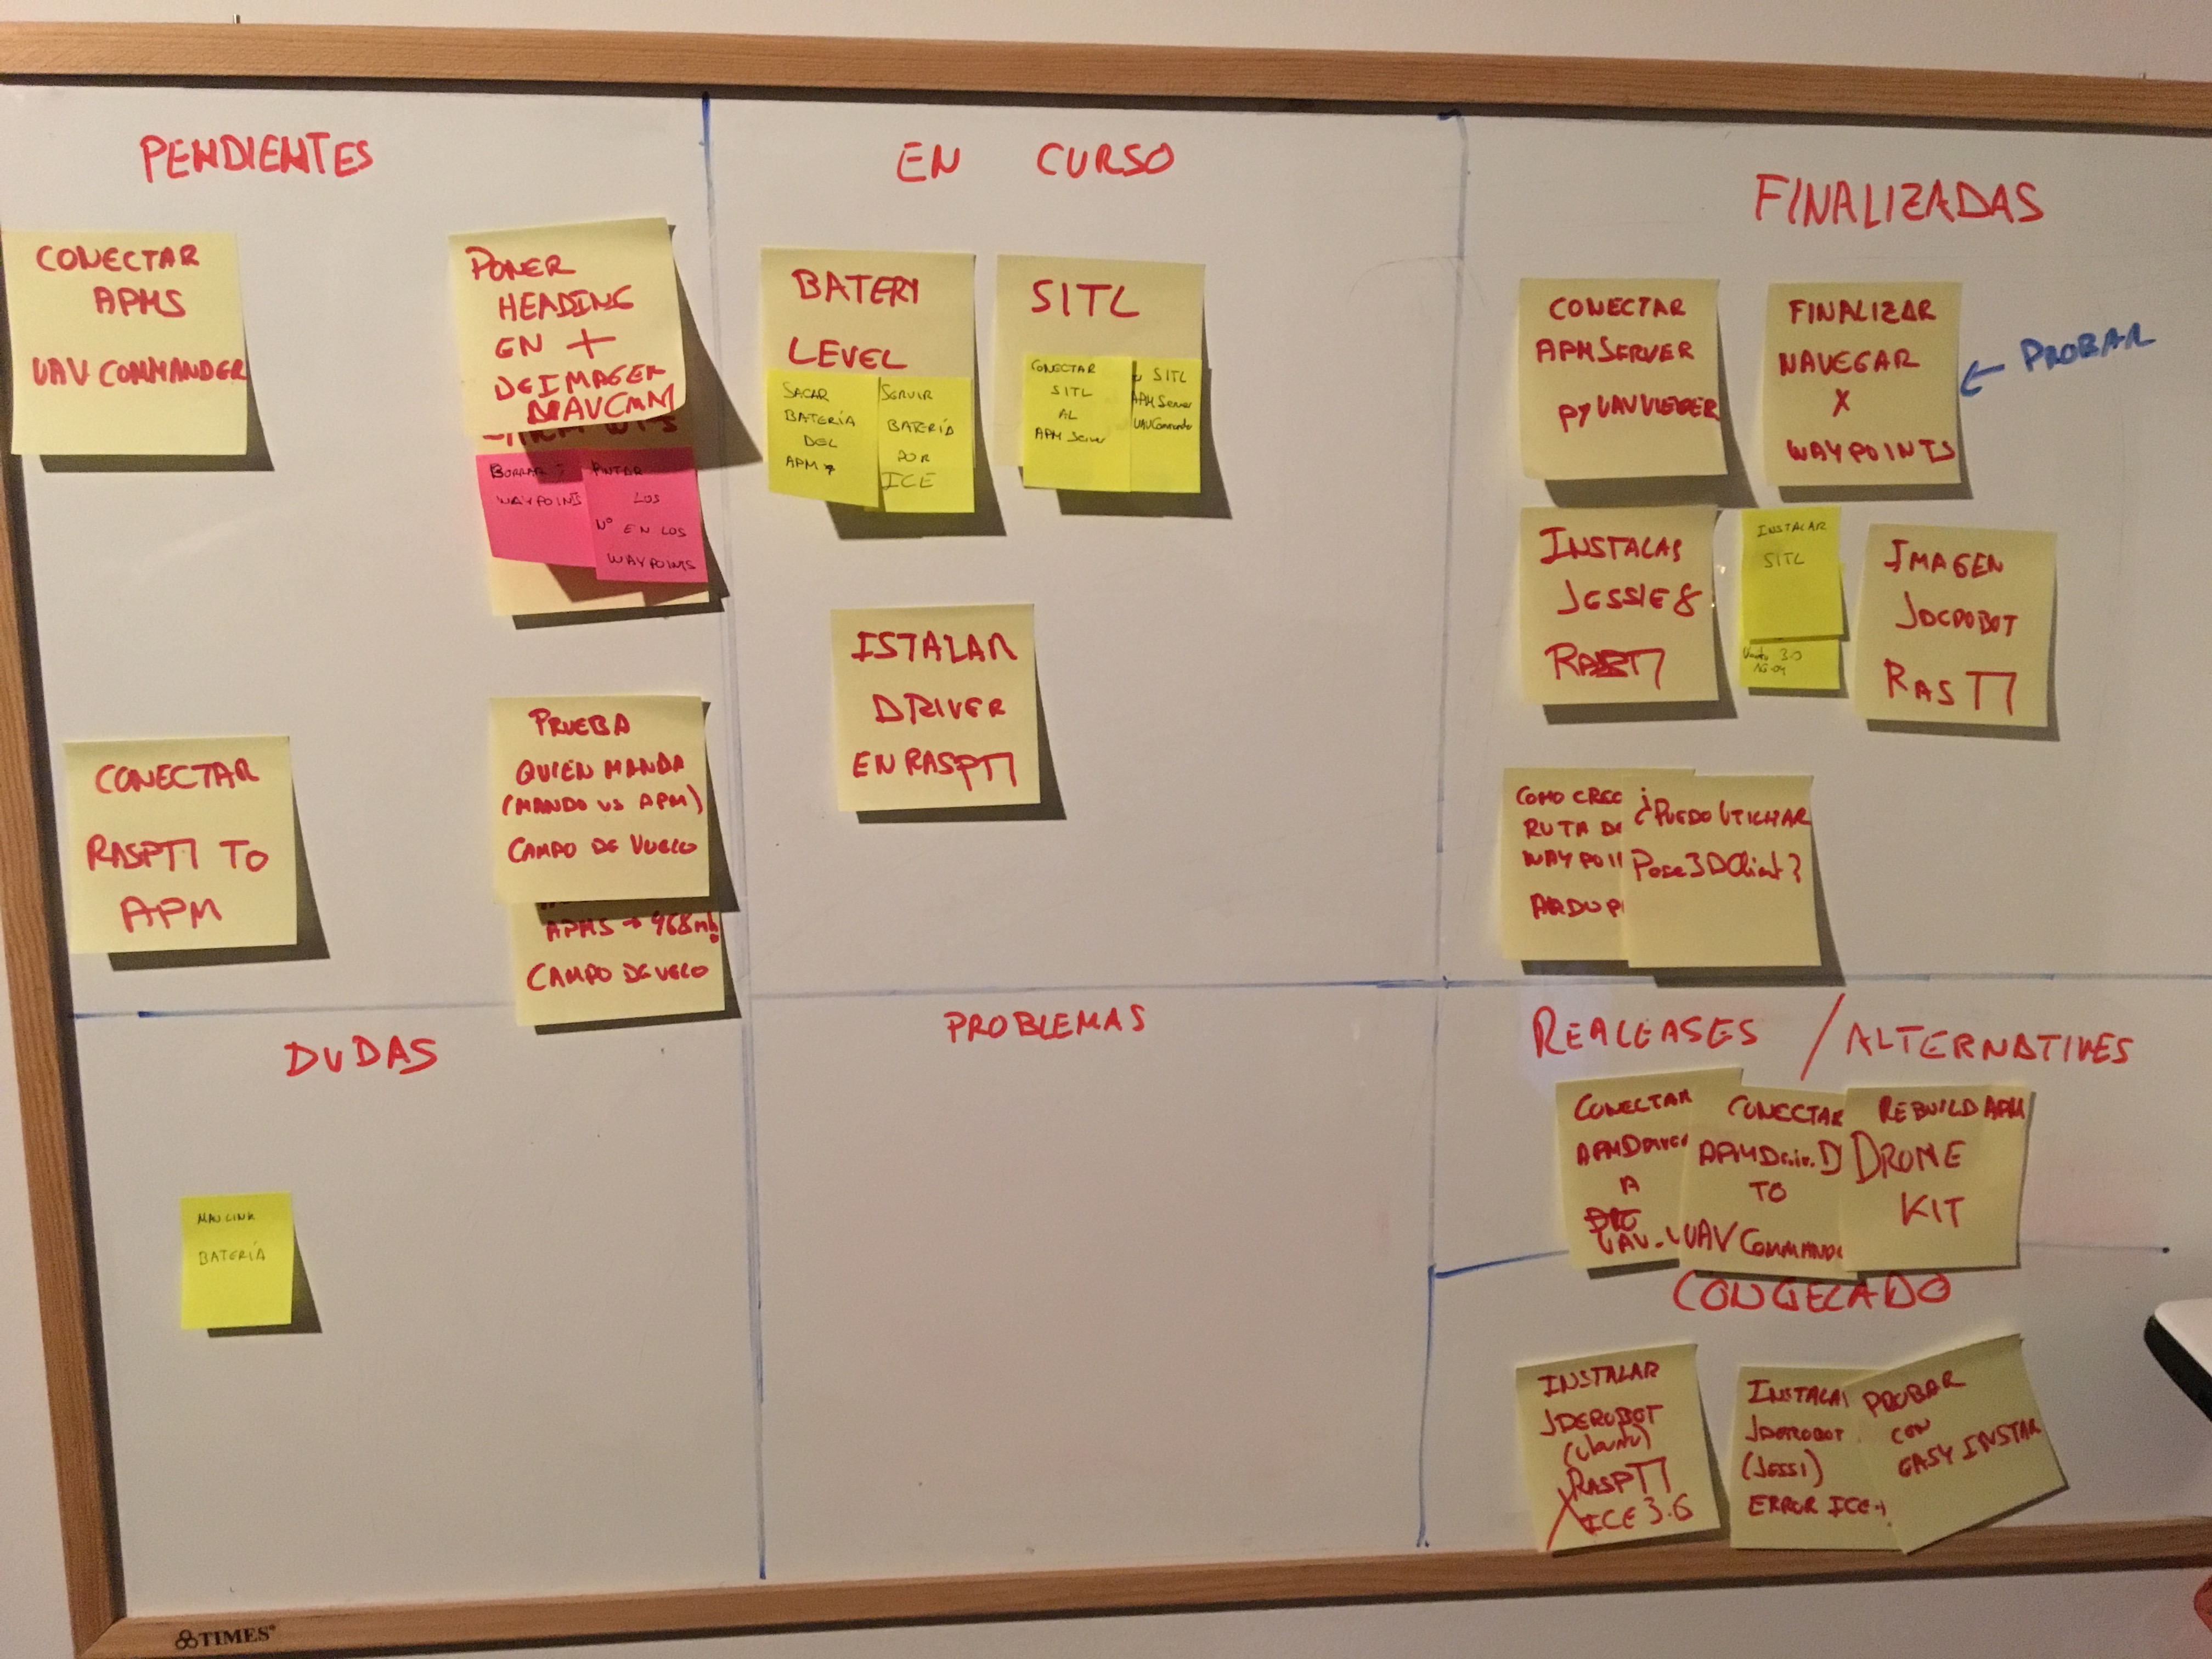 PENDIENTES
CONECTAR
APMS
UAV COMMANDER
PONER
HEADING
EN +
DE IMAGEN
BORRAR
WAYPOINTS
PINTAR
LOS
Nº EN LOS
WAYPOINTS
CONECTAR
RASPΠ TO
APM
PRUEBA
QUIEN MANDA
(MANDO VS APM)
CAMPO DE VUELO
APMS → 468mh
CAMPO DE VUELO
EN CURSO
BATERY
LEVEL
SACAR
BATERÍA
DEL
APM
SERVIR
BATERÍA
POR
ICE
SITL
CONECTAR
SITL
AL
APM Server
SITL
APM Server
UAVCommander
ISTALAR
DRIVER
EN RASPΠ
FINALIZADAS
CONECTAR
APM SERVER
PYUAVVIEWER
FINALIZAR
NAVEGAR
X
WAYPOINTS
← PROBAR
INSTALAR
JESSIE 8
INSTALAR
SITL
IMAGEN
JDEROBOT
RASΠ
COMO CREO
RUTA DE
WAYPOI
ARDUP
¿PUEDO UTILIZAR
Pose3DClient?
DUDAS
MAVLINK
BATERÍA
PROBLEMAS
REALEASES / ALTERNATIVES
CONECTAR
APMDriver
A
UAV-V
CONECTAR
TO
UAV COMMANDE
REBUILD APM
DRONE
KIT
CONGELADO
INSTALAR
JDEROBOT
(Ubuntu)
RASPΠ
ICE 3.6
INSTALA
JDEROBOT
(JESSI)
ERROR ICE
PROBAR
CON
EASY INSTAR
TIMES